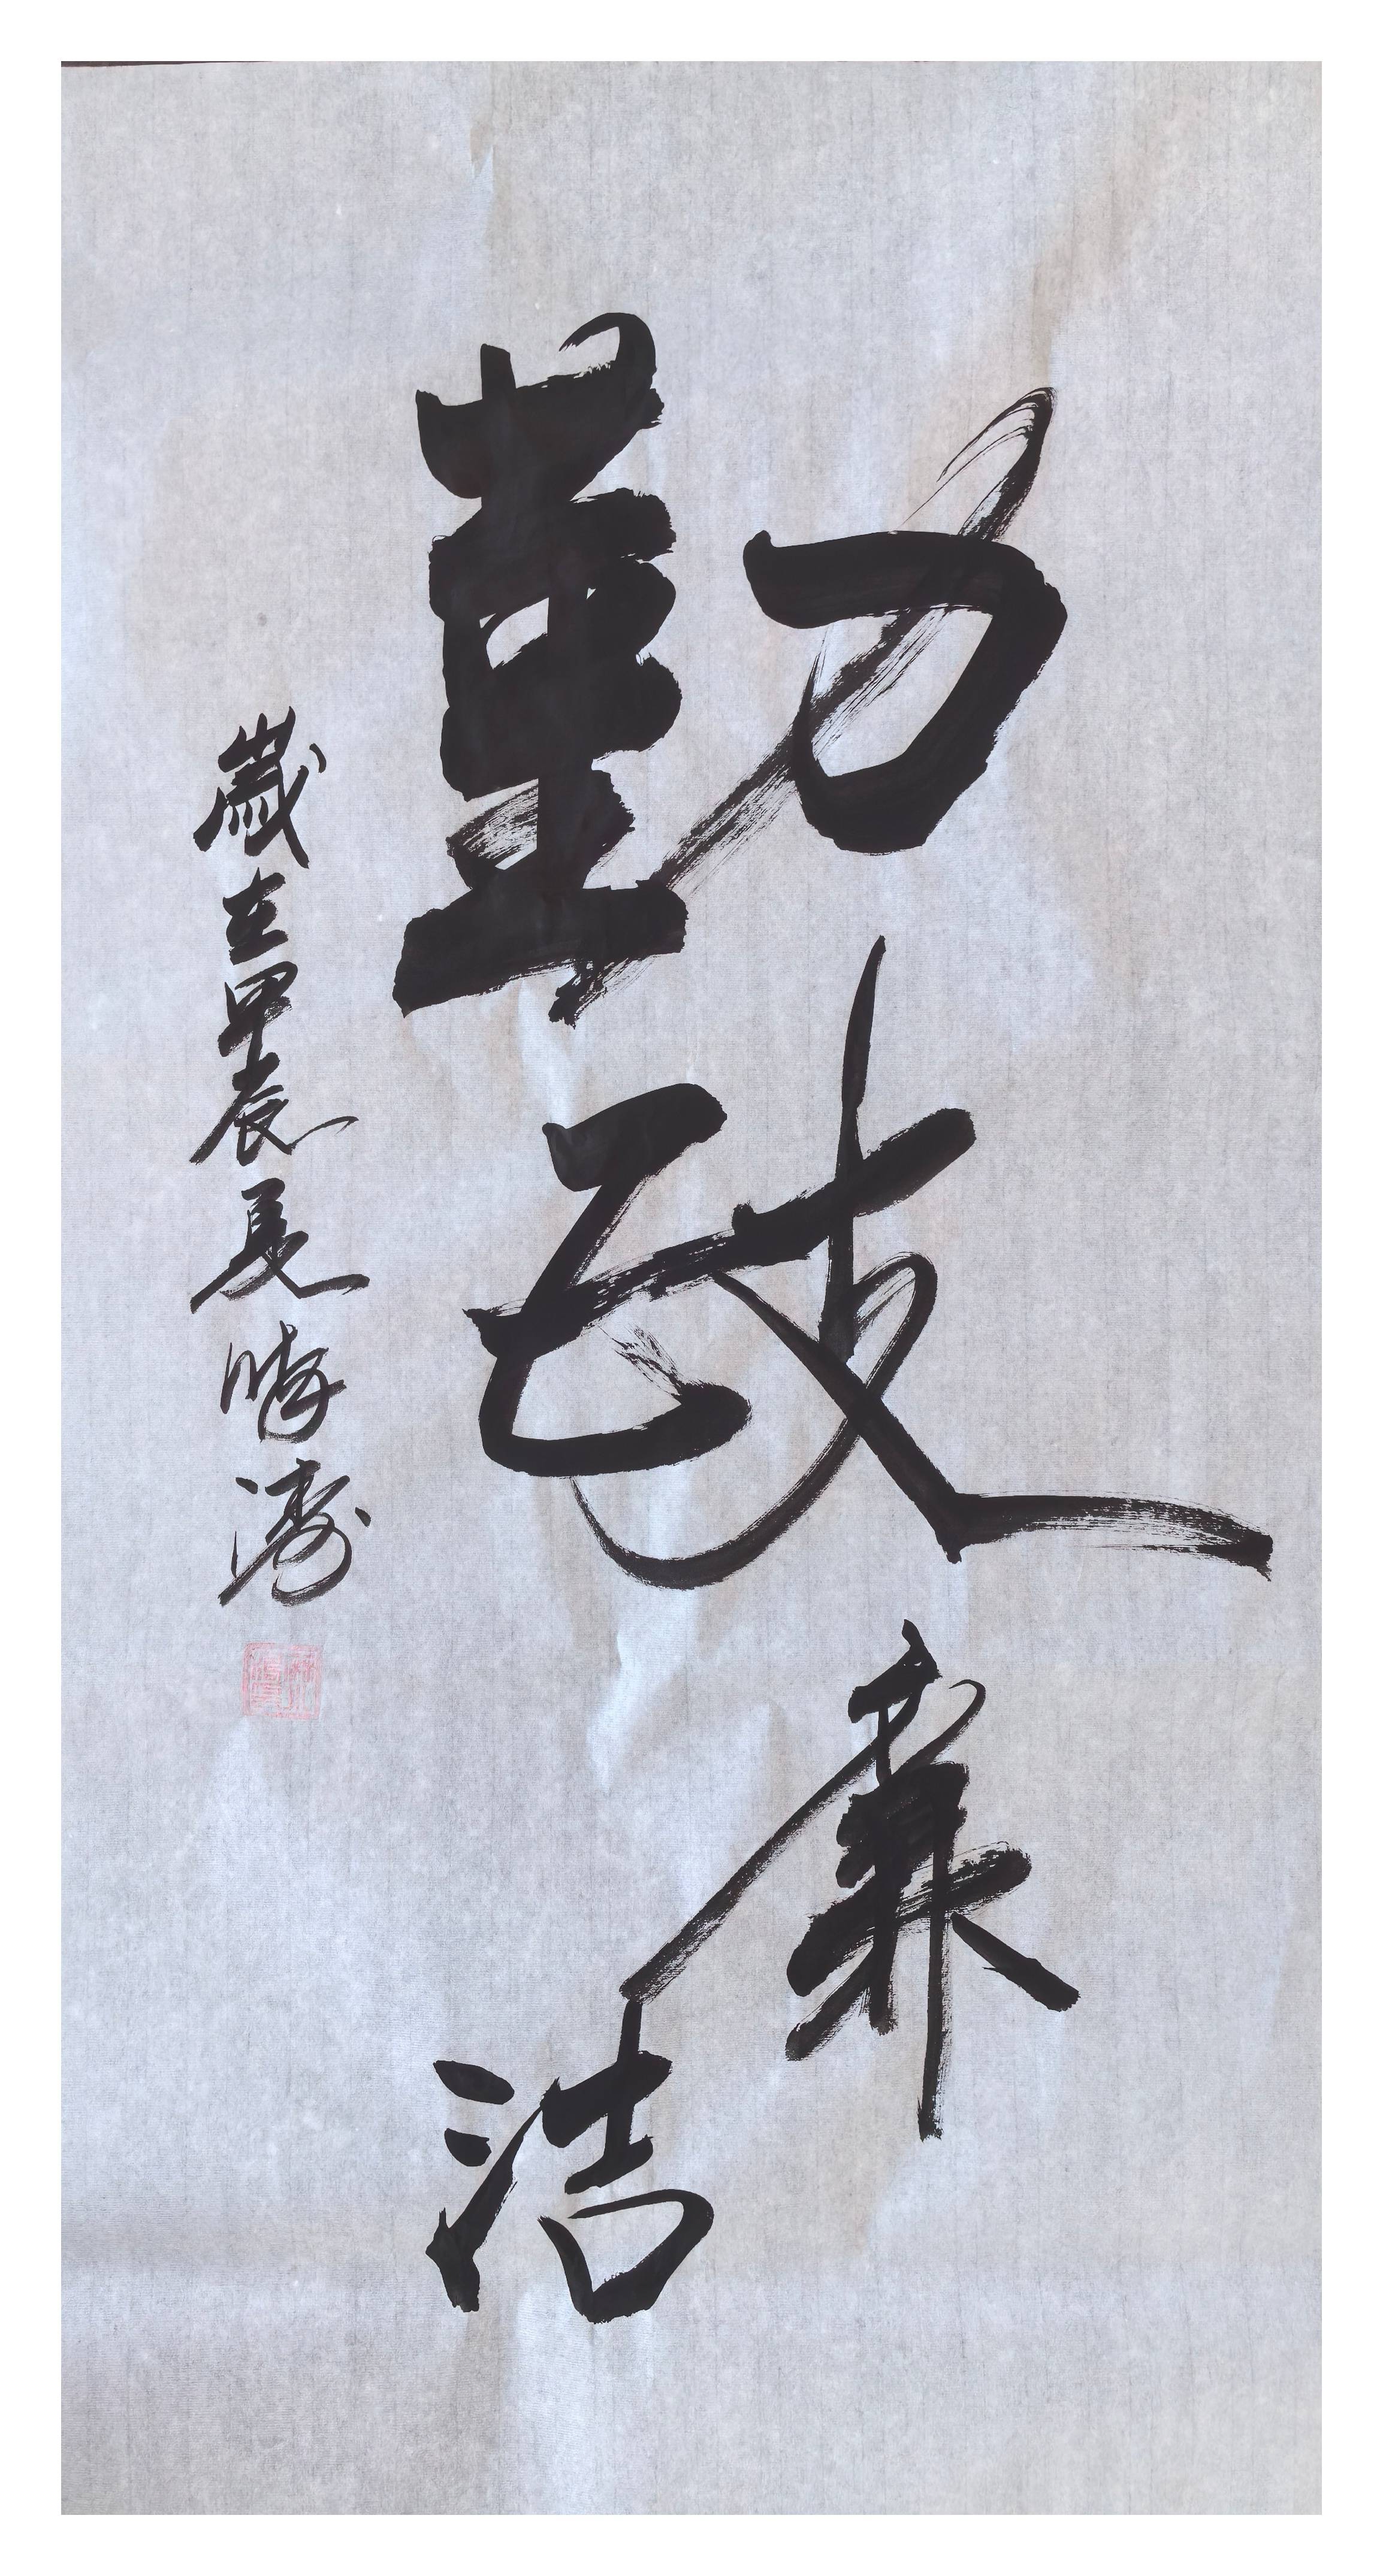 勤政廉洁
歲在甲辰夏曉濤